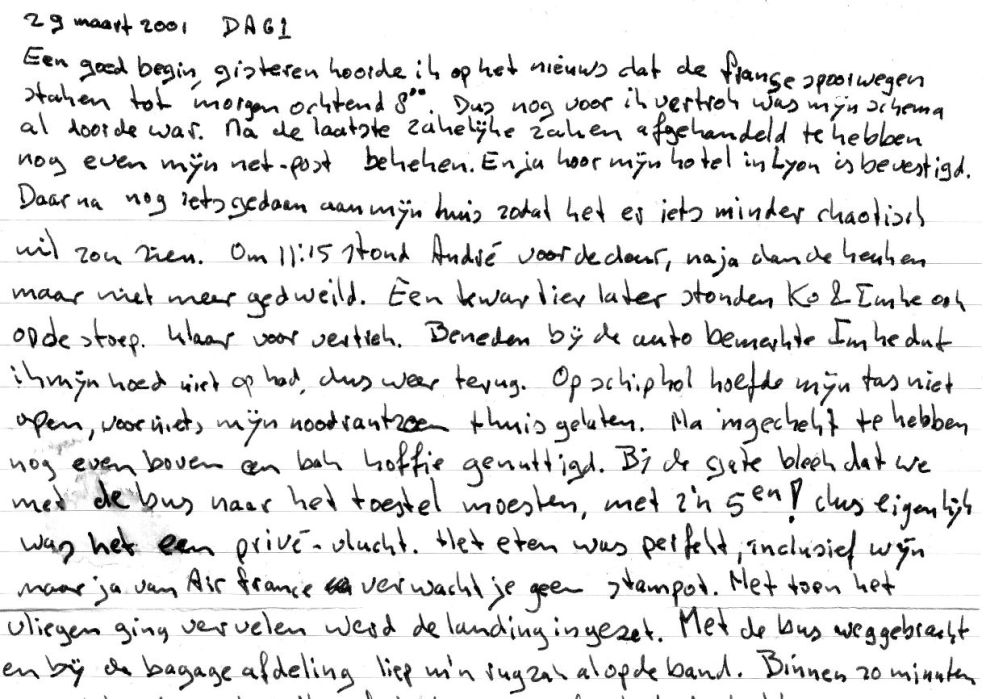 29 maart 2001 DAG 1
Een goed begin, gisteren hoorde ik op het nieuws dat de franse spoorwegen
staken tot morgen ochtend 8°°. Dus nog voor ik vertrok was mijn schema
al doorde war. Na de laatste zakelijke zaken afgehandeld te hebben
nog even mijn net-post bekeken. En ja hoor mijn hotel in Lyon is bevestigd.
Daarna nog iets gedaan aan mijn huis zodat het er iets minder chaotisch
uit zou zien. Om 11:15 stond André voor de deur, na ja dan de keuken
maar niet meer gedweild. Een kwartier later stonden Ko & Imke ook
op de stoep. Klaar voor vertrek. Beneden bij de auto bemerkte Imke dat
ik mijn hoed niet op had, dus weer terug. Op schiphol hoefde mijn tas niet
open, voor niets mijn noodrantzoen thuis gelaten. Na ingecheckt te hebben
nog even boven een bak koffie genuttigd. Bij de gate bleek dat we
met de bus naar het toestel moesten, met z'n 5en! dus eigenlijk
was het een privé-vlucht. Het eten was perfekt, inclusief wijn
maar ja van Air france verwacht je geen stampot. Net toen het
vliegen ging vervelen werd de landing ingezet. Met de bus weggebracht
en bij de bagage afdeling liep m'n rugzak al op de band. Binnen 20 minuten